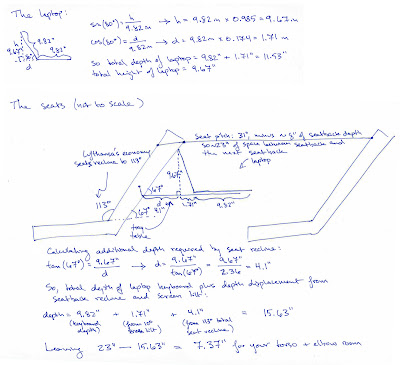 The laptop:
sin(80°) = h / 9.82 in → h = 9.82 in × 0.985 = 9.67 in
cos(80°) = d / 9.82 in → d = 9.82 in × 0.174 = 1.71 in
So total depth of laptop = 9.82" + 1.71" = 11.53"
total height of laptop = 9.67"
h
9.67"
9.82"
9.82"
1.71"
d
The seats (not to scale)
Seat pitch: 31", minus ~8" of seatback depth
so ~23" of space between seatback and
the next seatback
laptop
Lufthansa's economy
seats recline to 113°
113°
9.67"
67°
67°
d
4.1"
1.71"
9.82"
tray
table
Calculating additional depth required by seat recline:
tan(67°) = 9.67" / d → d = 9.67" / tan(67°) = 9.67" / 2.36 = 4.1"
So, total depth of laptop keyboard plus depth displacement from
seatback recline and screen tilt:
depth = 9.82" + 1.71" + 4.1" = 15.63"
(keyboard depth) (from 10° screen tilt) (from 113° total seat recline)
Leaving 23" — 15.63" = 7.37" for your torso + elbow room